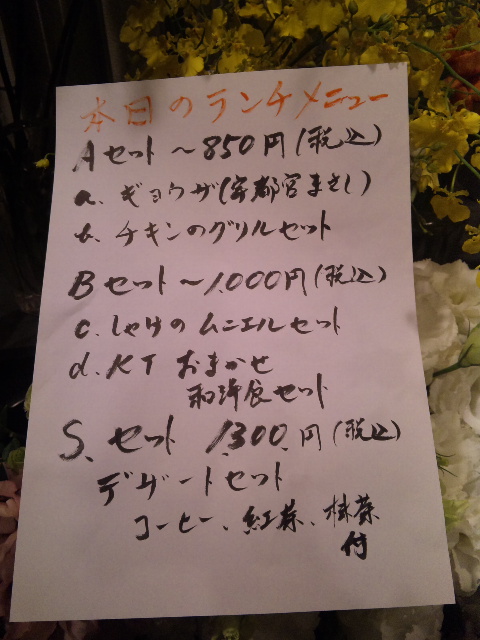 本日のランチメニュー
Aセット～850円(税込)
a. ギョウザ(宇都宮まさし)
b. チキンのグリルセット
Bセット～1,000円(税込)
c. しゃけのムニエルセット
d. KT おまかせ
和洋食セット
S.セット 1,300.円(税込)
デザートセット
コーヒー、紅茶、抹茶
付